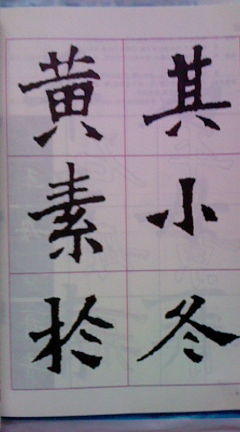 其小冬
黄素於